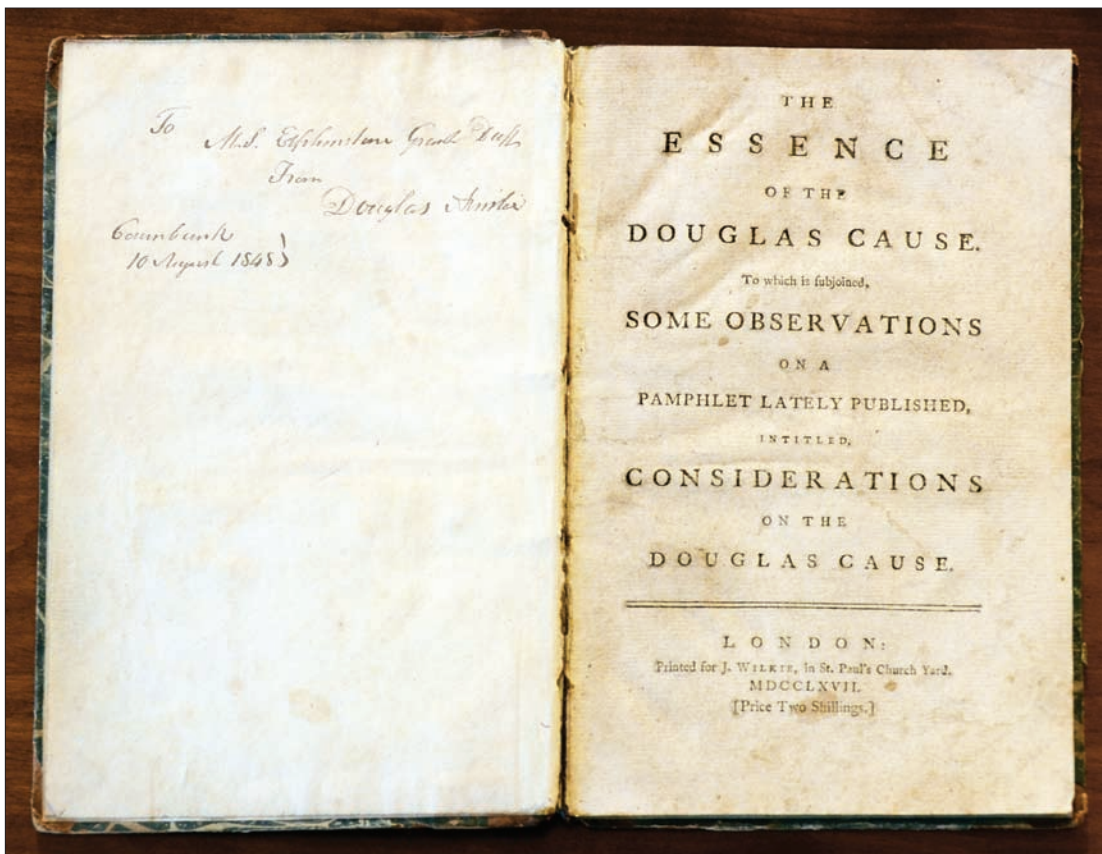 To
M.S. Elphinstone Grant Duff
From
Douglas Ainslie
10 August 1848
THE
ESSENCE
OF THE
DOUGLAS CAUSE.
To which is ſubjoined,
SOME OBSERVATIONS
ON A
PAMPHLET LATELY PUBLISHED,
INTITLED,
CONSIDERATIONS
ON THE
DOUGLAS CAUSE.
LONDON:
Printed for J. WILKIE, in St. Paul's Church Yard.
MDCCLXVII.
[Price Two Shillings.]